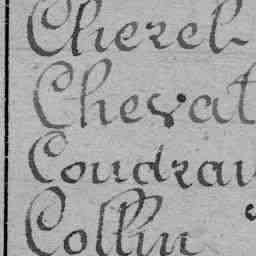 Cherel
Chevat
Coudray
Collin